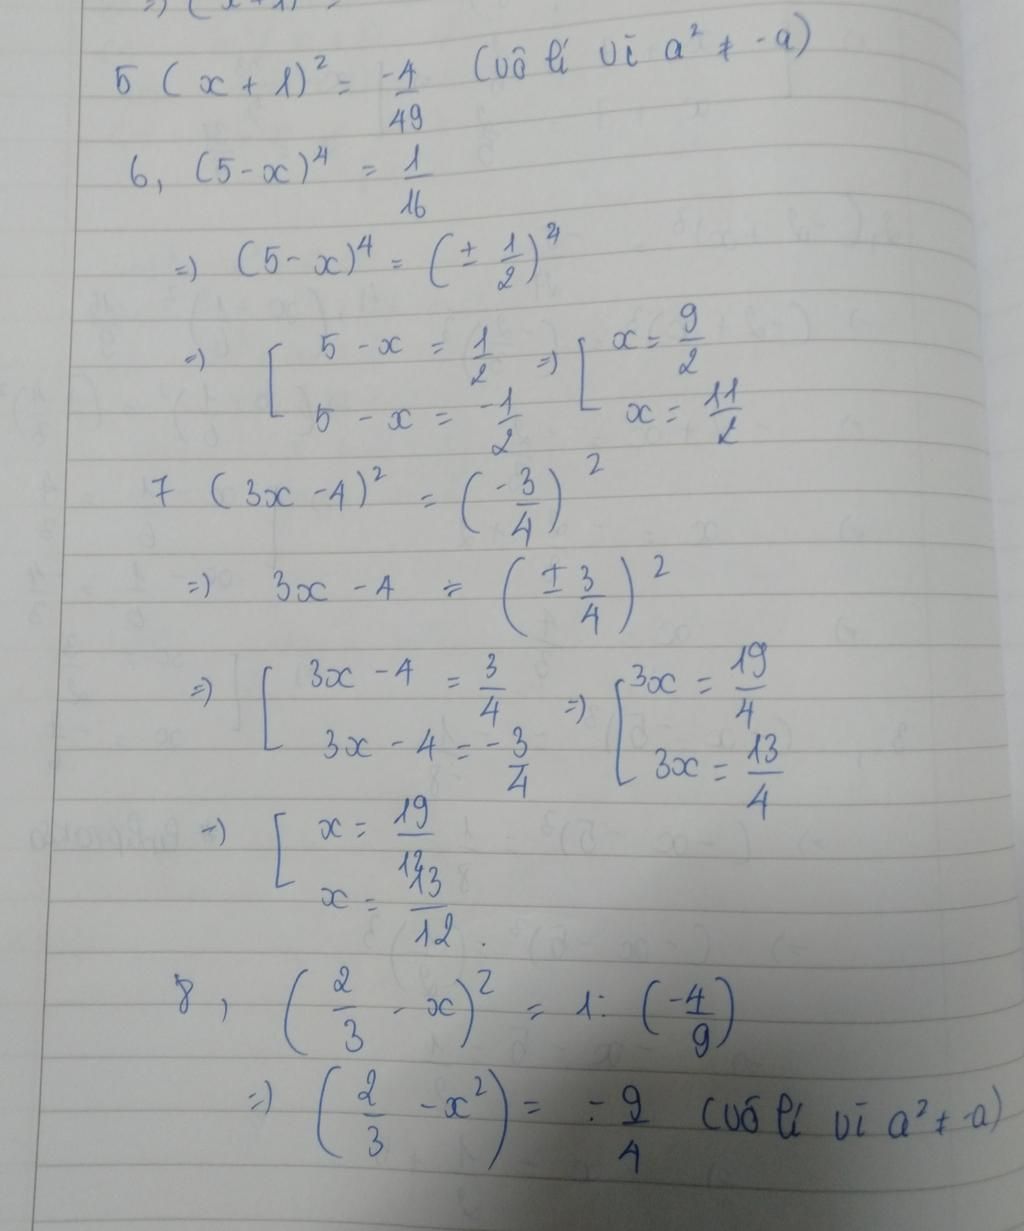 =) (x+1) =
5 (x + 1)² = -4/49 (vô lí vì a² ≠ -a)
6, (5-x)⁴ = 1/16
=) (5-x)⁴ = (± 1/2)⁴
=) [ 5 - x = 1/2 =) [ x = 9/2
5 - x = -1/2 x = 11/2
7 (3x -4)² = (-3/4)²
=) 3x - 4 = (± 3/4)²
=) [ 3x - 4 = 3/4 =) [ 3x = 19/4
3x - 4 = -3/4 3x = 13/4
=) [ x = 19/12
x = 13/12.
8, (2/3 - x)² = 1: (-4/9)
=) (2/3 - x²) = -9/4 (vô lí vì a² ≠ -a)